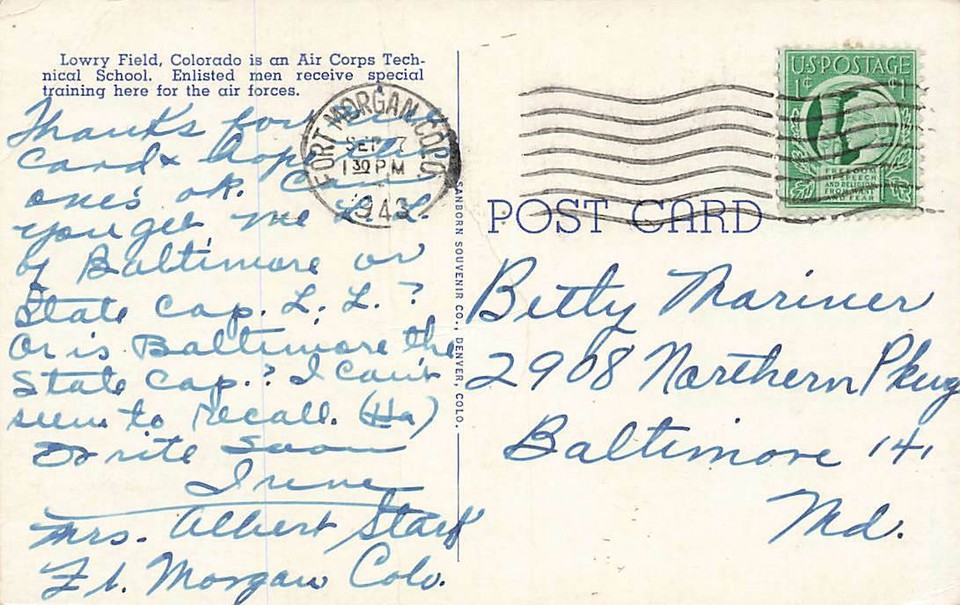 Lowry Field, Colorado is an Air Corps Tech-
nical School. Enlisted men receive special
training here for the air forces.
Thanks for
card & hope
one's ok. Can
you get me L.L.
of Baltimore or
State Cap. L. L. ?
Or is Baltimore the
State Cap.? I can't
seem to recall. (Ha)
rite Soon
Irene
Mrs. Albert Stark
Ft. Morgan Colo.
FORT MORGAN, COLO.
SEP 7
1 30 PM
1943
SANBORN SOUVENIR CO., DENVER, COLO.
U.S. POSTAGE
1¢ 1¢
FREEDOM
OF SPEECH
AND RELIGION
FROM WANT
AND FEAR
POST CARD
Betty Mariner
2908 Northern Pkwy
Baltimore 14,
Md.